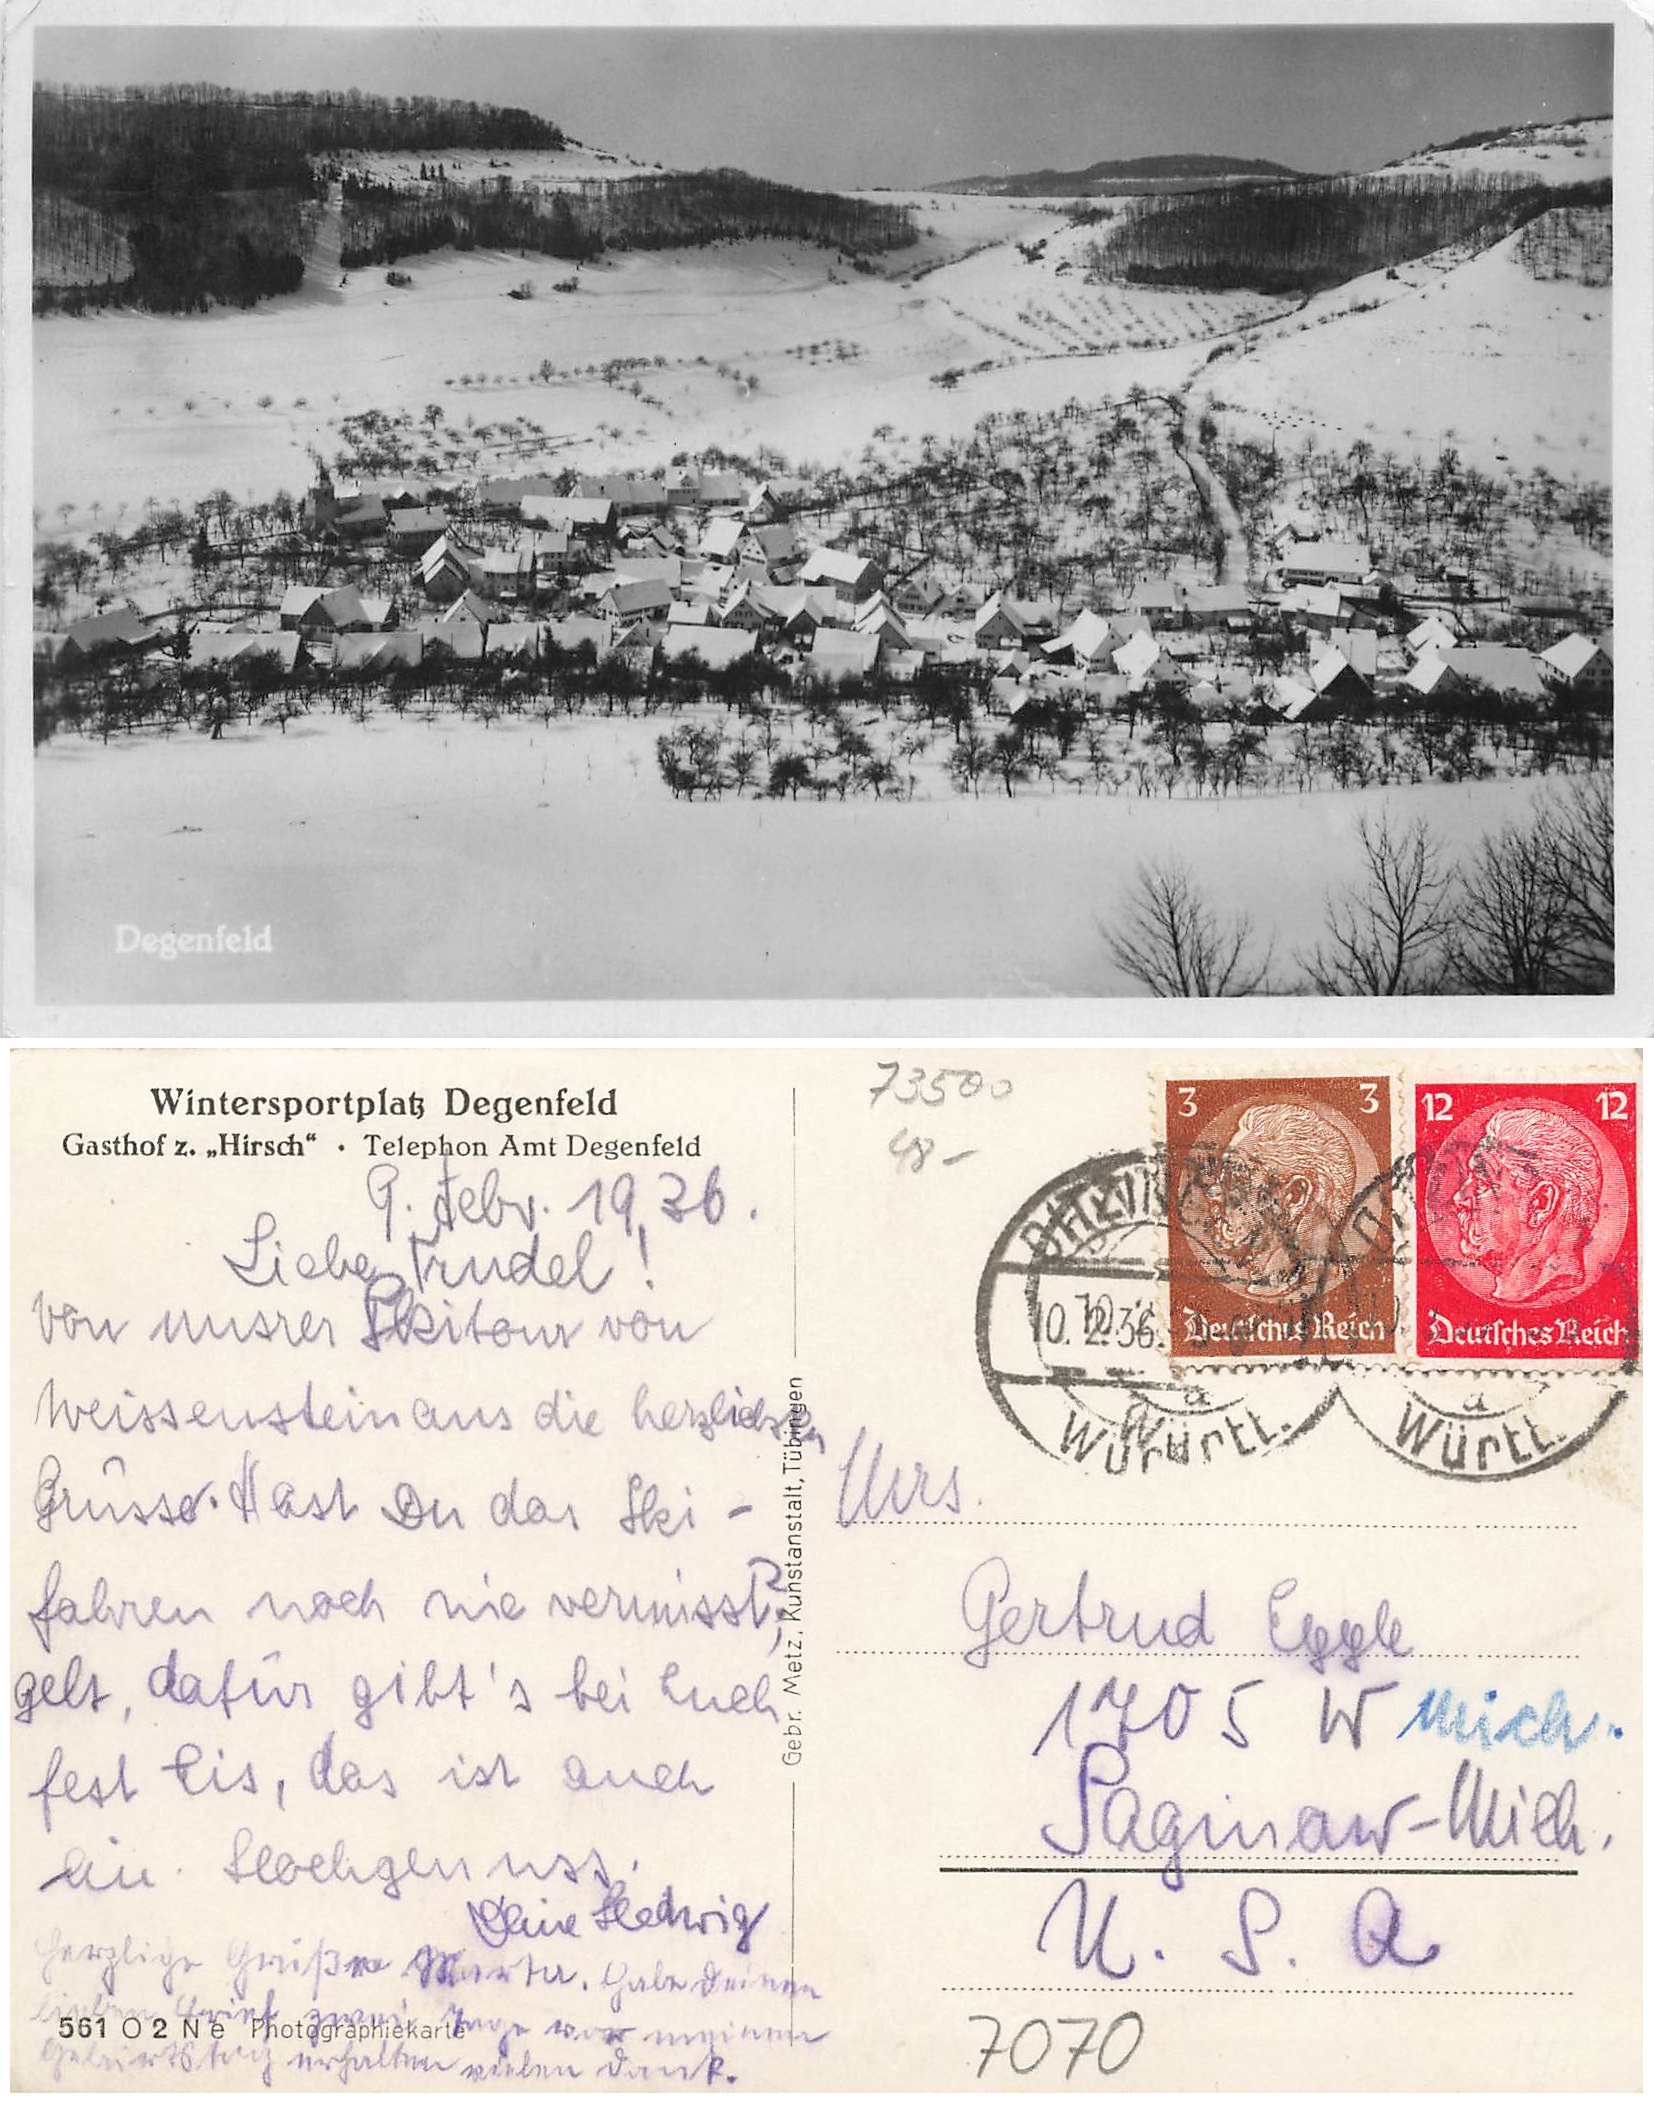 Degenfeld
Wintersportplatz Degenfeld
Gasthof z. „Hirsch“ · Telephon Amt Degenfeld
9. Febr. 1936.
Liebe Trudel!
Von unsrer Skitour von
Weissenstein aus die herzlichsten
Grüsse. Hast Du das Ski-
fahren noch nie vermisst?,
gelt, dafür gibt's bei Euch
fest Eis, das ist auch
ein Hochgenuss.
Deine Hedwig
Herzliche Grüße Marta. Habe Deinen
lieben Brief zwei Tage vor meinem
Geburtstag erhalten vielen Dank.
561 O 2 Ne Photographiekarte
Gebr. Metz, Kunstanstalt, Tübingen
73500
48-
3 3
Deutsches Reich
12 12
Deutsches Reich
10.2.36
a
Württ.
a
Württ.
Mrs.
Gertrud Eggle
1705 W Mich.
Saginaw-Mich.
U. S. A
7070